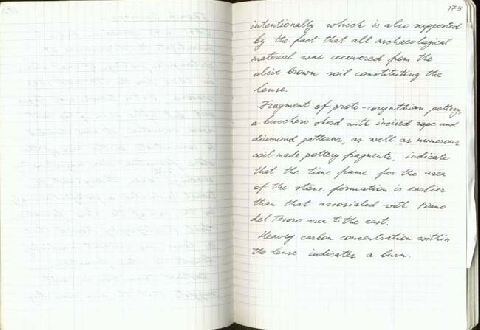 173
intentionally which is also supported
by the fact that all archaeological
material was recovered from the
olive brown soil constituting the
lense.
Fragment of proto-corynthian pottery,
a bucchero shed with incised rope and
diamond patterns, as well as numerous
well made pottery fragments, indicate
that the time frame for the uses
of the stone formation is earlier
than that associated with
to the east.
Heavy carbon concentration within
the lense indicates a burn.